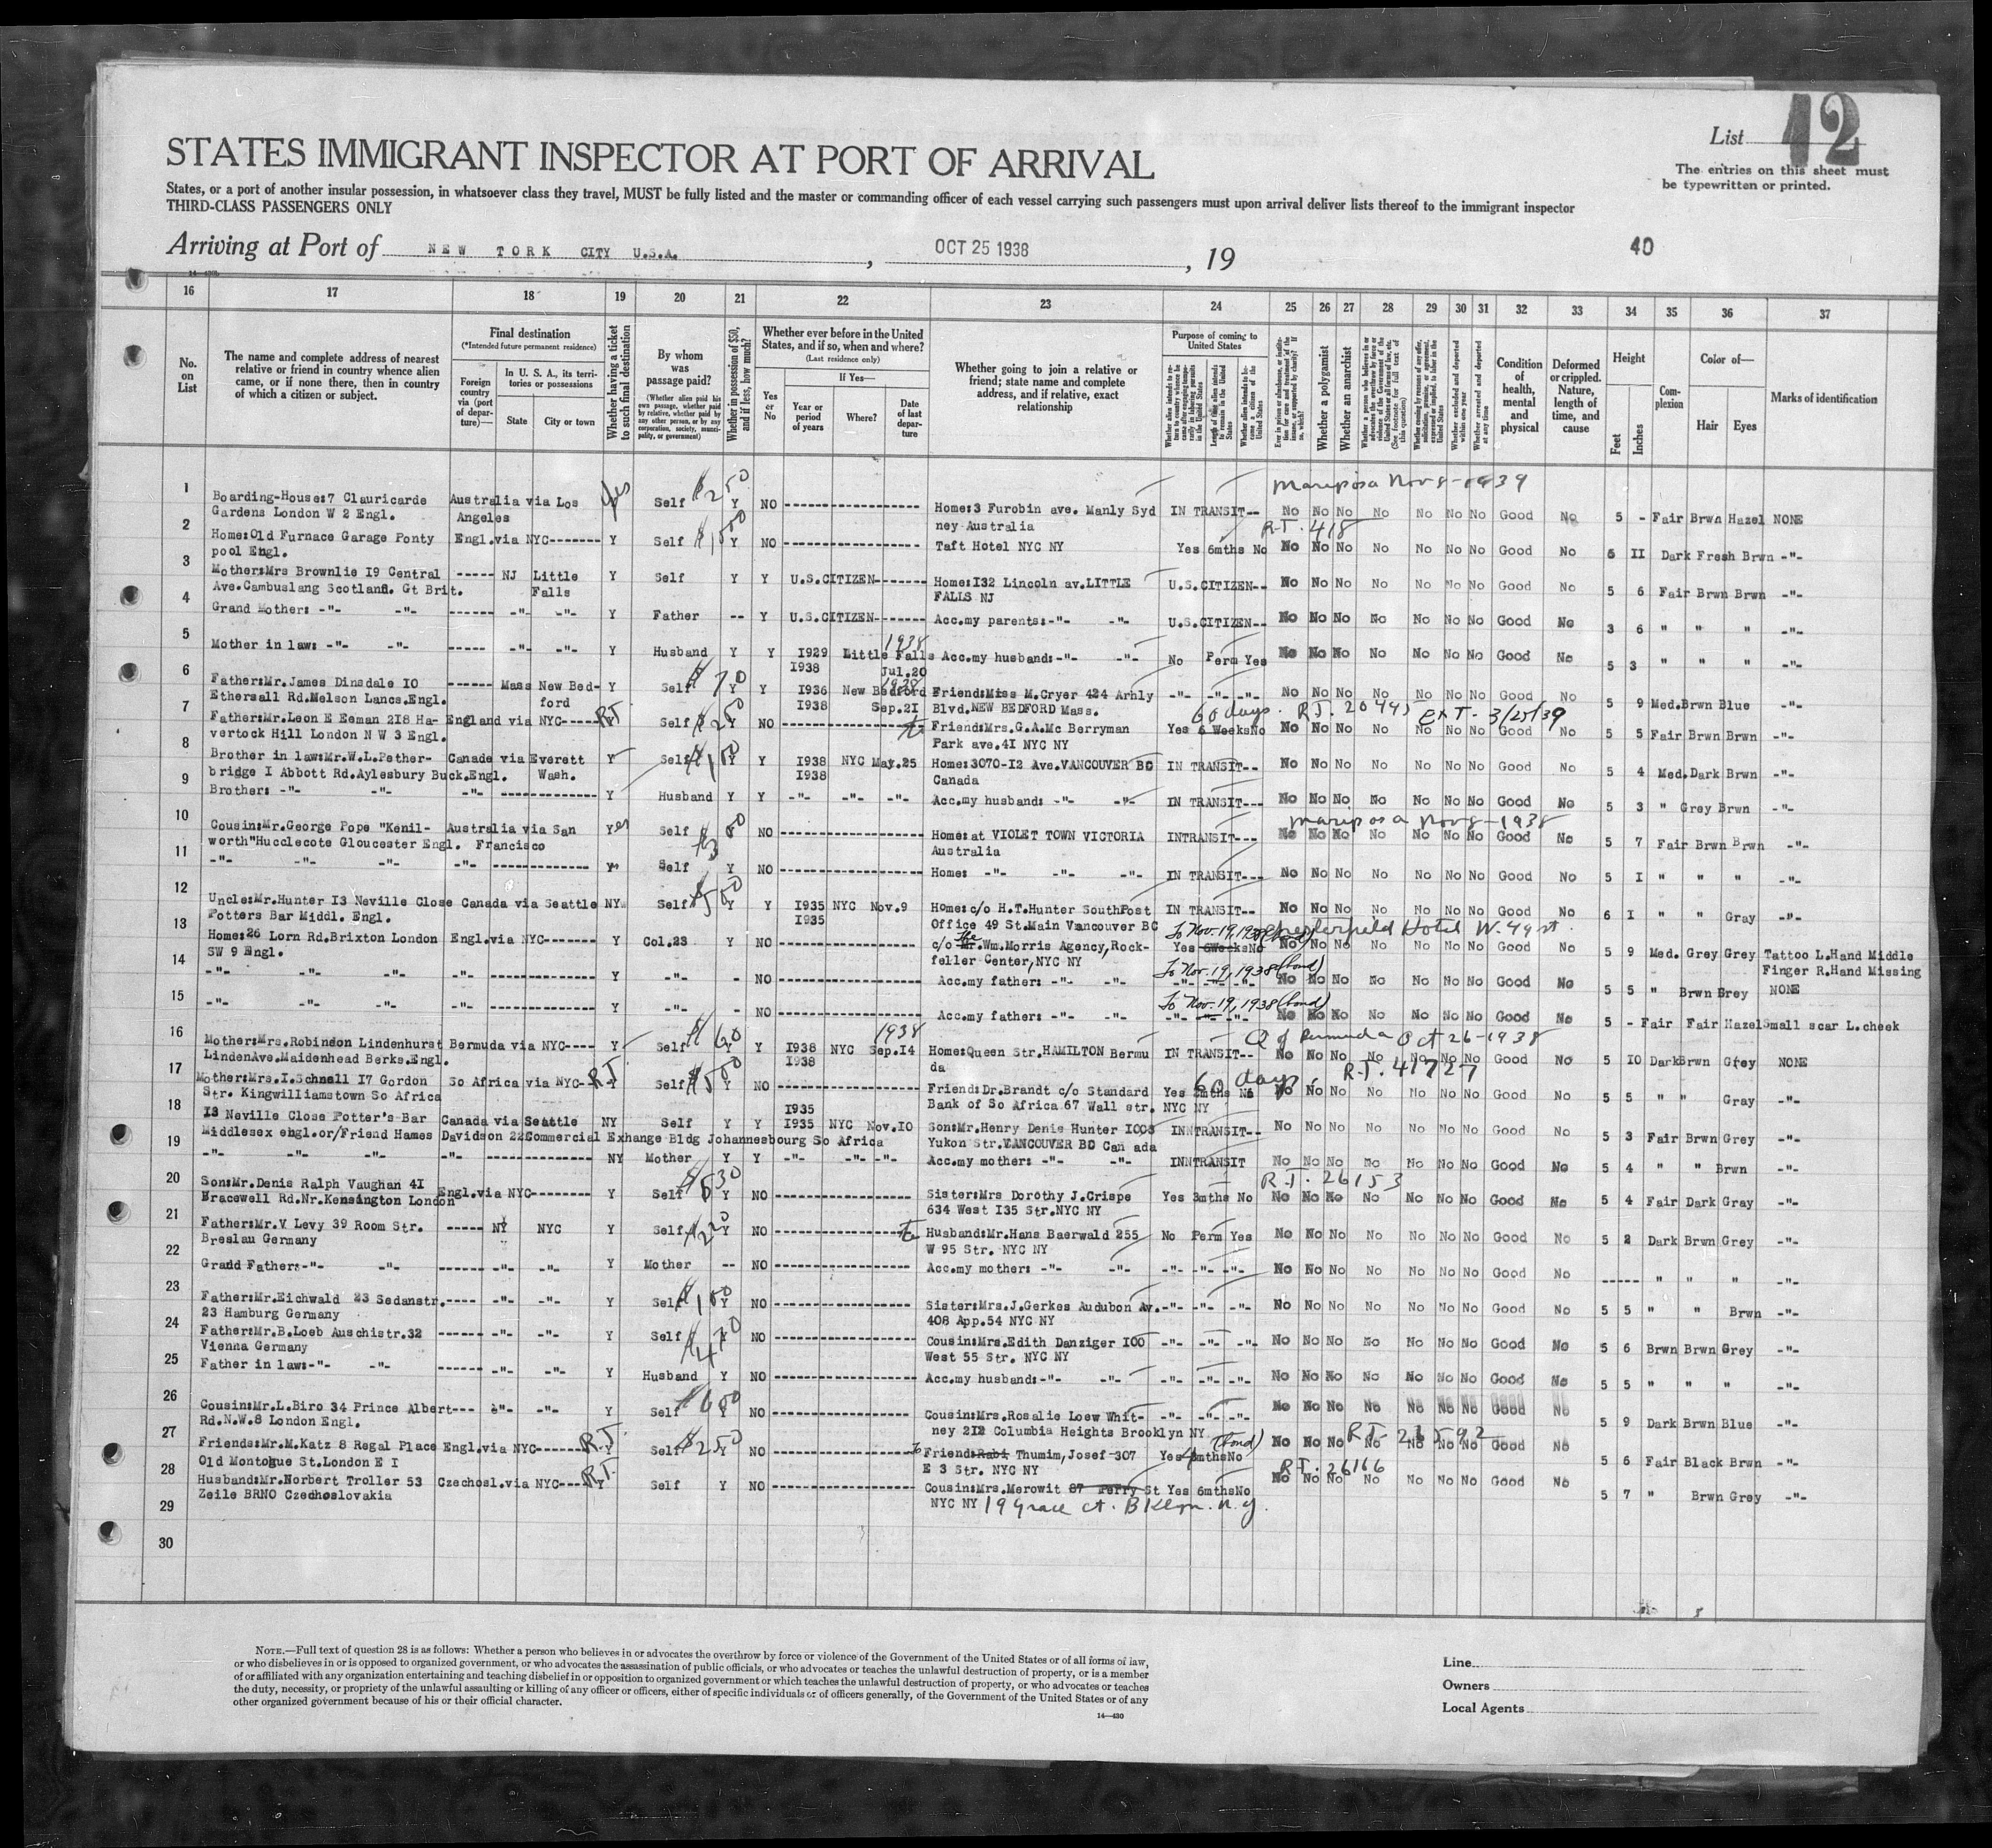 List 12
STATES IMMIGRANT INSPECTOR AT PORT OF ARRIVAL
The entries on this sheet must
be typewritten or printed.
States, or a port of another insular possession, in whatsoever class they travel, MUST be fully listed and the master or commanding officer of each vessel carrying such passengers must upon arrival deliver lists thereof to the immigrant inspector
THIRD-CLASS PASSENGERS ONLY
Arriving at Port of NEW TORK CITY U.S.A. , OCT 25 1938 , 19
40
16 17 18 19 20 21 22 23 24 25 26 27 28 29 30 31 32 33 34 35 36 37
No. on List
The name and complete address of nearest relative or friend in country whence alien came, or if none there, then in country of which a citizen or subject.
Final destination
(*Intended future permanent residence)
Foreign country via (port of departure)—
In U. S. A., its territories or possessions
State
City or town
Whether having a ticket to such final destination
By whom was passage paid?
(Whether alien paid his own passage, whether paid by relative, whether paid by any other person, or by any corporation, society, municipality, or government)
Whether in possession of $50, and if less, how much?
Whether ever before in the United States, and if so, when and where?
(Last residence only)
Yes or No
If Yes—
Year or period of years
Where?
Date of last departure
Whether going to join a relative or friend; state name and complete address, and if relative, exact relationship
Purpose of coming to United States
Whether a polygamist
Whether an anarchist
Condition of health, mental and physical
Deformed or crippled. Nature, length of time, and cause
Height
Feet
Inches
Complexion
Color of—
Hair
Eyes
Marks of identification
Mariposa Nov 8-1939
1 Boarding-House:7 Clauricarde Australia via Los Yes Self $250 Y NO Home:3 Furobin ave. Manly Syd IN TRANSIT-- No No No No No No No Good No 5 - Fair Brwn Hazel NONE
Gardens London W 2 Engl. Angeles ney Australia
R.T. 418
2 Home:Old Furnace Garage Ponty Engl.via NYC Y Self Y NO Taft Hotel NYC NY Yes 6mths No No No No No No No No Good No 6 II Dark Fresh Brwn -"-
pool Engl.
3 Mother:Mrs Brownlie I9 Central ----- NJ Little Y Self Y Y U.S.CITIZEN Home:I32 Lincoln av.LITTLE U.S.CITIZEN-- No No No No No No No Good No 5 6 Fair Brwn Brwn -"-
Ave.Cambuslang Scotland. Gt Brit. Falls FALLS NJ
4 Grand Mother: -"- -"- ------ -"- -"- Y Father -- Y U.S.CITIZEN Acc.my parents:-"- -"- U.S.CITIZEN-- No No No No No No No Good No 3 6 " " " -"-
1938
5 Mother in law: -"- -"- ----- -"- -"- Y Husband Y Y I929 Little Falls Acc.my husband:-"- -"- No Perm Yes No No No No No No No Good No 5 3 " " " -"-
I938 Jul.20
1938
6 Father:Mr.James Dinsdale IO ------ Mass New Bed- Y Self $70 Y Y I936 New Bedford Friend:Miss M.Cryer 424 Arhly -"- -"- -"- No No No No No No No Good No 5 9 Med.Brwn Blue -"-
Ethersall Rd.Nelson Lancs.Engl. ford I938 Sep.2I Blvd.NEW BEDFORD Mass.
60 days. R.T. 20445 Ext. 3/25/39
7 Father:Mr.Leon E Eeman 2I8 Ha- England via NYC R.T. Self $250 Y NO Friend:Mrs.G.A.Mc Berryman Yes 6 WeeksNo No No No No No No No Good No 5 5 Fair Brwn Brwn -"-
vertock Hill London N W 3 Engl. Park ave.4I NYC NY
8 Brother in law:Mr.W.L.Pether- Canada via Everett Y Self $100 Y Y I938 NYC May.25 Home:3070-I2 Ave.VANCOUVER BC IN TRANSIT-- No No No No No No No Good No 5 4 Med.Dark Brwn -"-
bridge I Abbott Rd.Aylesbury Buck.Engl. Wash. I938 Canada
9 Brother: -"- -"- -"- Y Husband Y Y -"- -"- -"- Acc.my husband: -"- -"- IN TRANSIT--- No No No No No No No Good No 5 3 " Grey Brwn -"-
Mariposa Nov 8-1938
10 Cousin:Mr.George Pope "Kenil- Australia via San Yes Self Y NO Home:at VIOLET TOWN VICTORIA INTRANSIT--- No No No No No No No Good No 5 7 Fair Brwn Brwn -"-
worth"Hucclecote Gloucester Engl. Francisco Australia
11 -"- -"- -"- -"- Self Y NO Home: -"- -"- -"- IN TRANSIT--- No No No No No No No Good No 5 I " " " -"-
12 Uncle:Mr.Hunter I3 Neville Close Canada via Seattle NY Self $500 Y Y I935 NYC Nov.9 Home:c/o H.T.Hunter SouthPost IN TRANSIT-- No No No No No No No Good No 6 I " " Gray -"-
Potters Bar Middl. Engl. I935 Office 49 St.Main Vancouver BC
To Nov.19,1938 (bond) Chesterfield Hotel W. 49 st.
13 Home:26 Lorn Rd.Brixton London Engl.via NYC Y Col.23 Y NO c/o The Mr.Wm.Morris Agency,Rock- Yes 6WeeksNo No No No No No No No Good No 5 9 Med. Grey Grey Tattoo L.Hand Middle
SW 9 Engl. feller Center,NYC NY Finger R.Hand Missing
To Nov. 19, 1938 (bond)
14 -"- -"- -"- -"- Y -"- - NO Acc.my father: -"- -"- -"- -"- -"- No No No No No No No Good No 5 5 " Brwn Grey NONE
To Nov. 19, 1938 (bond)
15 -"- -"- -"- -"- Y -"- - NO Acc.my father: -"- -"- -"- -"- -"- No No No No No No No Good No 5 - Fair Fair Hazel Small scar L.cheek
1938 Q of Bermuda Oct 26-1938
16 Mother:Mrs.Robinson Lindenhurst Bermuda via NYC---- Y Self $60 Y Y I938 NYC Sep.I4 Home:Queen Str.HAMILTON Bermu IN TRANSIT-- No No No No No No No Good No 5 IO DarkBrwn Grey NONE
LindenAve.Maidenhead Berks.Engl. I938 da
60 days R.T. 41727
17 Mother:Mrs.I.Schnell I7 Gordon So Africa via NYC- R.T. Y Self $500 Y NO Friend:Dr.Brandt c/o Standard Yes 2mths No No No No No No No No Good No 5 5 " " Gray -"-
Str. Kingwilliamstown So Africa Bank of So Africa 67 Wall str. NYC NY
18 I3 Neville Close Potter's Bar Canada via Seattle NY Self Y Y I935 I935 NYC Nov.IO Son:Mr.Henry Denis Hunter I003 INNTRANSIT-- No No No No No No No Good No 5 3 Fair Brwn Grey -"-
Middlesex engl.or/Friend Hames Davidson 22 Commercial Exhange Bldg Johannesbourg So Africa Yukon Str.VANCOUVER BC Can ada
19 -"- -"- -"- -"- NY Mother Y Y -"- -"- -"- Acc.my mother: -"- -"- INNTRANSIT No No No No No No No Good No 5 4 " " Brwn -"-
R.T. 26153
20 Son:Mr.Denis Ralph Vaughan 4I Engl.via NYC Y Self Y NO Sister:Mrs Dorothy J.Crispe Yes 3mths No No No No No No No No Good No 5 4 Fair Dark Gray -"-
Bracewell Rd.Nr.Kensington London 634 West I35 Str.NYC NY
21 Father:Mr.V Levy 39 Room Str. ----- NY NYC Y Self Y NO Husband:Mr.Hans Baerwald 255 No Perm Yes No No No No No No No Good No 5 2 Dark Brwn Grey -"-
Breslau Germany W 95 Str. NYC NY
22 Grand Father:-"- -"- ------ -"- -"- Y Mother -- NO Acc.my mother: -"- -"- -"- -"- -"- No No No No No No No Good No ----- " " " -"-
23 Father:Mr.Eichwald 23 Sedanstr.---- -"- -"- Y Self Y NO Sister:Mrs.J.Gerkes Audubon Av.-"- -"- -"- No No No No No No No Good No 5 5 " " Brwn -"-
23 Hamburg Germany 408 App.54 NYC NY
24 Father:Mr.B.Loeb Auschistr.32 ------ -"- -"- Y Self $470 Y NO Cousin:Mrs.Edith Danziger IOO -"- -"- -"- No No No No No No No Good No 5 6 Brwn Brwn Grey -"-
Vienna Germany West 55 Str. NYC NY
25 Father in law:-"- -"- ------ -"- -"- Y Husband Y NO Acc.my husband:-"- -"- -"- -"- -"- No No No No No No No Good No 5 5 " " " -"-
26 Cousin:Mr.L.Biro 34 Prince Albert--- -"- -"- Y Self $600 Y NO Cousin:Mrs.Rosalie Loew Whit- -"- -"- -"- No No No No No No No Good No 5 9 Dark Brwn Blue -"-
Rd.N.W.8 London Engl. ney 2I2 Columbia Heights Brooklyn NY
(bond)
27 Friends:Mr.M.Katz 8 Regal Place Engl.via NYC R.T. Y Self $250 Y NO Friend:Rabi Thumim,Josef 307 Yes mthsNo No No No No No No No Good No 5 6 Fair Black Brwn -"-
Old Montogue St.London E I E 3 Str. NYC NY
R.T. 26166
28 Husband:Mr.Norbert Troller 53 Czechosl.via NYC R.T. Y Self Y NO Cousin:Mrs.Merowit 87 Perry St Yes 6mthsNo No No No No No No No Good No 5 7 " Brwn Grey -"-
Zeile BRNO Czechoslovakia NYC NY 19 Grace ct. Bklyn. n.y.
29
30
NOTE.—Full text of question 28 is as follows: Whether a person who believes in or advocates the overthrow by force or violence of the Government of the United States or of all forms of law,
or who disbelieves in or is opposed to organized government, or who advocates the assassination of public officials, or who advocates or teaches the unlawful destruction of property, or is a member
of or affiliated with any organization entertaining and teaching disbelief in or opposition to organized government or which teaches the unlawful destruction of property, or who advocates or teaches
the duty, necessity, or propriety of the unlawful assaulting or killing of any officer or officers, either of specific individuals or of officers generally, of the Government of the United States or of any
other organized government because of his or their official character.
14—430
Line
Owners
Local Agents